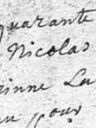 quarante
Nicolas
inne La
pour